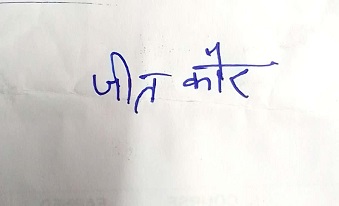 जीत कौर